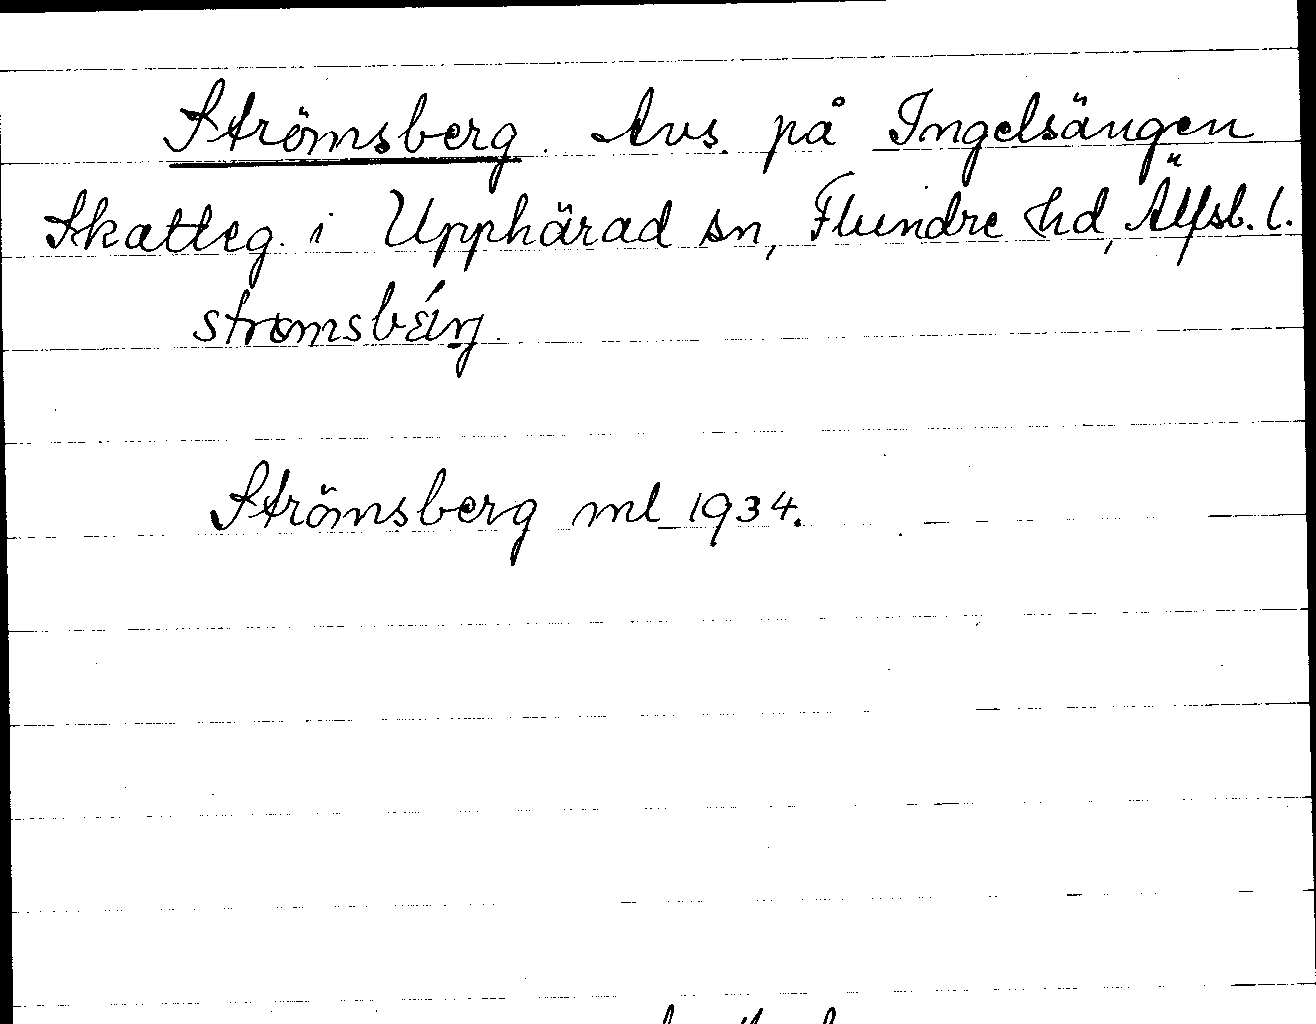 Strömsberg. Avs. på Ingelsängen
Skatteg. i Upphärad sn, Flundre hd, Älfsb. l.
Strömsberg ml 1934.